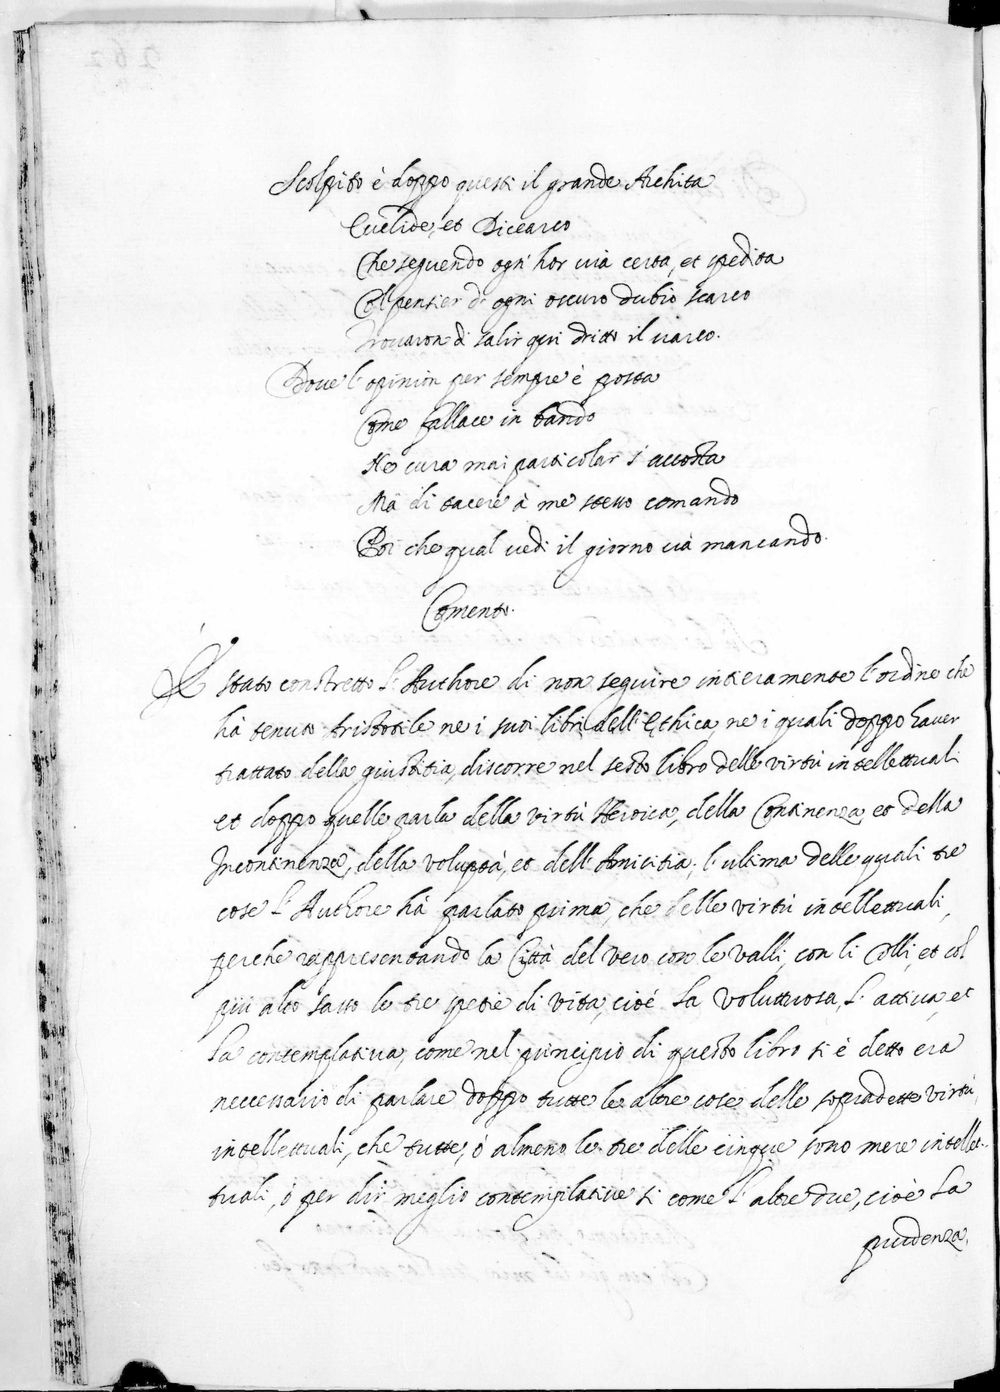 Scolpito è doppo questi il grande Archita
Euclide, et Dicearco
Che seguendo ogn' hor via certa, et spedita
Col pensier d' ogni oscuro dubio scarco
Trovaron di salir qui dritto il varco.
Dove l' opinion per sempre è posta
Come fallace in bando
Ne cura mai particolar s' accosta
Mà di tacere à me stesso comando
Poi che qual vedi il giorno và mancando.
Comento.
È stato constretto l' Authore di non seguire intieramente l' ordine che
hà tenuto Aristotile ne i suoi libri dell' Ethica, ne i quali doppo haver
trattato della giustitia, discorre nel sesto libro delle virtù intellettuali
et doppo quelle parla della virtù Heroica, della Continenza et della
Incontinenza, della voluptà, et dell' Amicitia; l' ultima delle quali tre
cose l' Authore hà parlato prima, che delle virtù intellettuali,
perche rappresentando la Città del vero con le valli, con li Colli, et col
più alto sasso le tre spetie di vita, cioè la voluttuosa, l' attiva, et
la contemplativa, come nel principio di questo libro si è detto era
neccessario di parlare doppo tutte le altre cose delle sopradette virtù
intellettuali, che tutte, ò almeno le tre delle cinque sono mere intellet-
tuali, ò per dir meglio contemplative si come l' altre due, cioè la
prudenza,